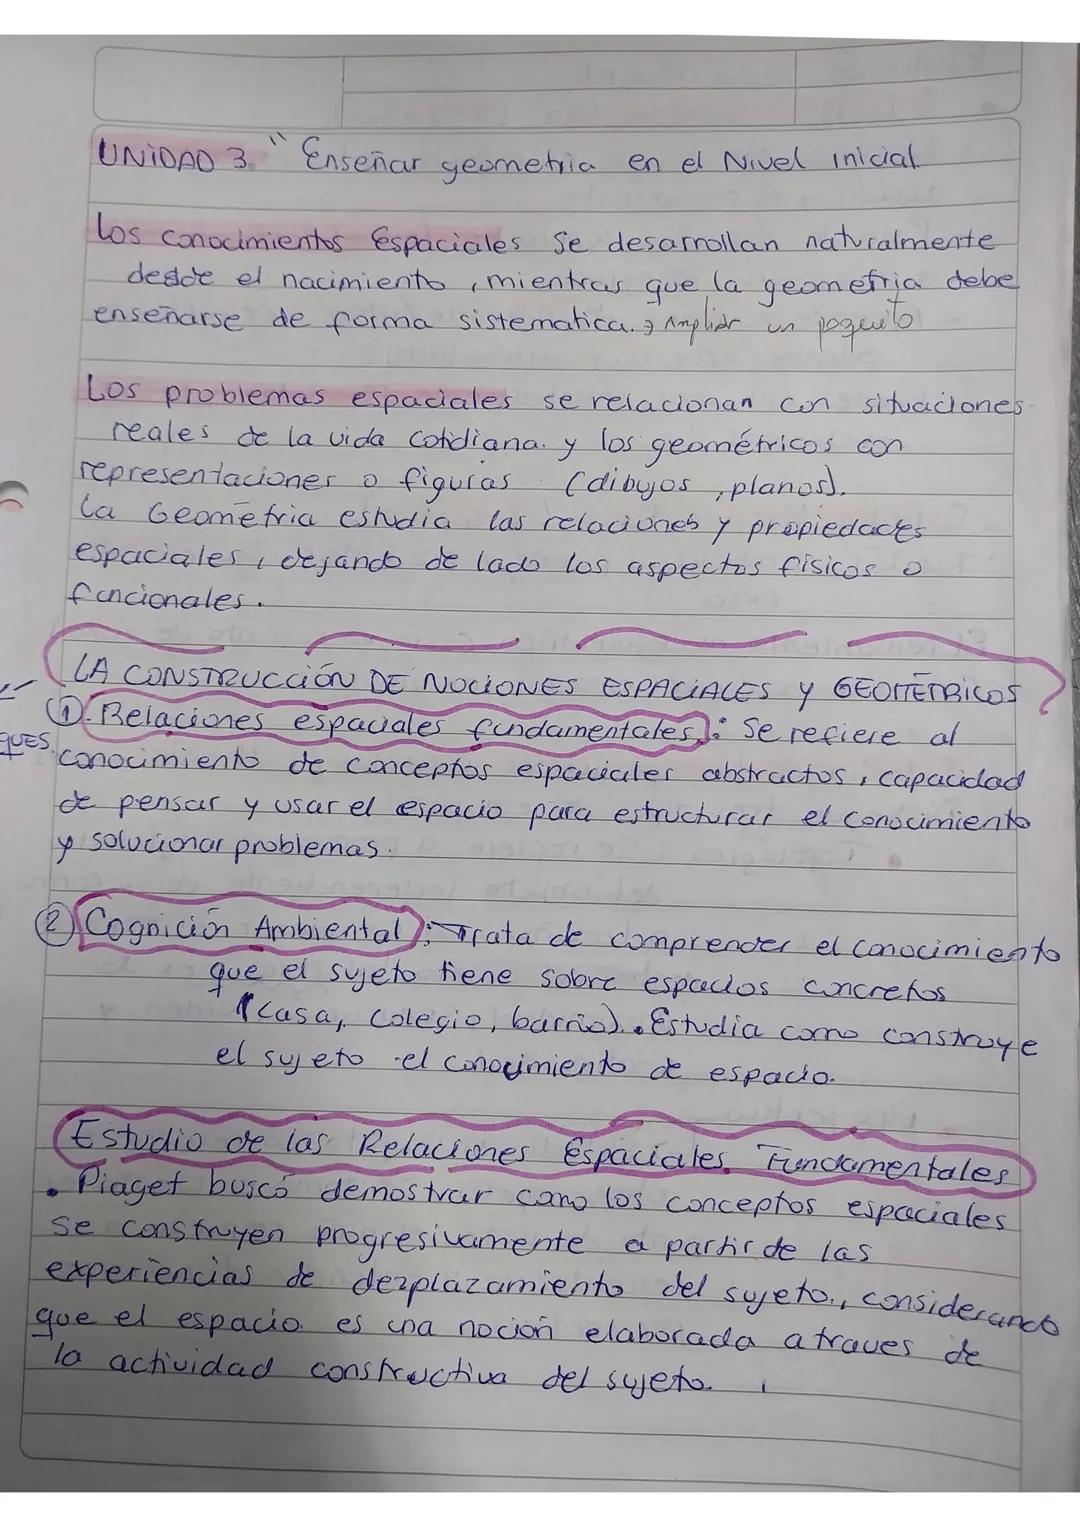 UNIDAD 3. "Enseñar geometria en el Nivel inicial
Los conocimientos Espaciales se desarrollan naturalmente
desde el nacimiento, mientras que la geometria debe
enseñarse de forma sistematica. Ampliar un poquito
Los problemas espaciales se relacionan con situaciones
reales de la vida cotidiana. y los geométricos con
representaciones o figuras (dibujos, planos).
La Geometria estudia las relaciones y propiedades
espaciales, dejando de lado los aspectos fisicos o
funcionales.
LA CONSTRUCCIÓN DE NOCIONES ESPACIALES Y GEOMÉTRICOS
①. Relaciones espaciales fundamentales.: Se refiere al
QUES.
conocimiento de conceptos espaciales abstractos, capacidad
de pensar y usar el espacio para estructurar el conocimiento
y solucionar problemas.
② Cognición Ambiental: Trata de comprender el conocimiento
que el sujeto tiene sobre espacios concretos
(casa, colegio, barrio). Estudia como construye
el sujeto el conocimiento de espacio.
Estudio de las Relaciones Espaciales Fundamentales
• Piaget buscó demostrar como los conceptos espaciales
se construyen progresivamente a partir de las
experiencias de dezplazamiento del sujeto., considerando
que el espacio. es una noción elaborada a traves de
la actividad constructiva del sujeto.